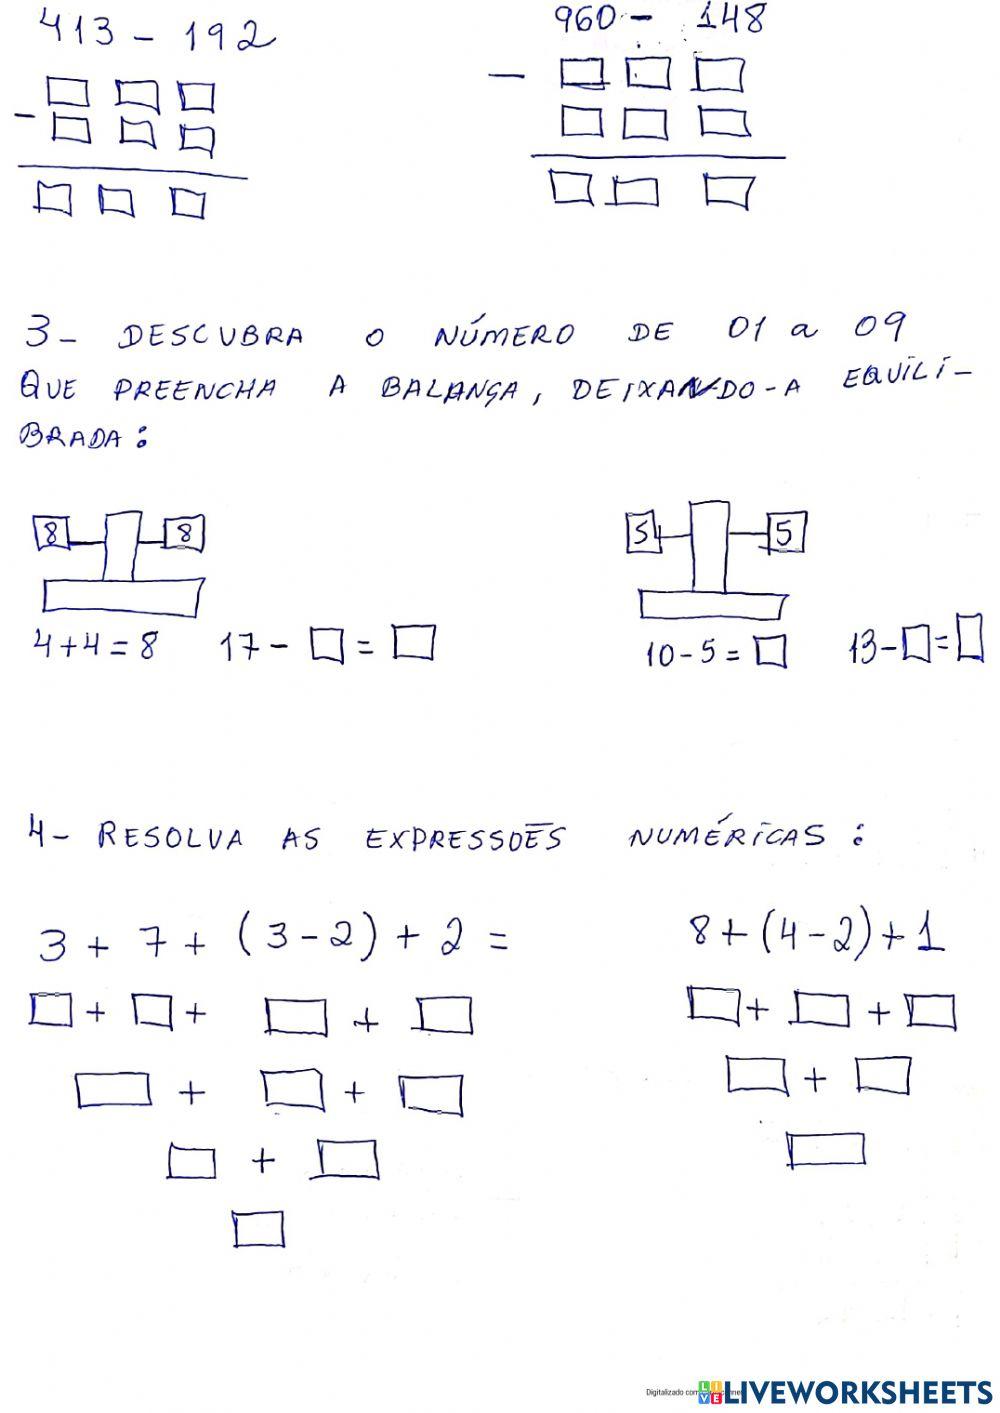 413 - 192
960 - 148
-
-
3- DESCUBRA O NÚMERO DE 01 a 09
QUE PREENCHA A BALANÇA, DEIXANDO-A EQUILI-
BRADA:
8 8
5 5
4+4=8 17- =
10-5= 13- =
4- RESOLVA AS EXPRESSOĒS NUMÉRICAS:
3 + 7 + (3-2) + 2 =
8+(4-2)+1
+ + +
+ +
+ +
+
+
Digitalizado com
LIVEWORKSHEETS